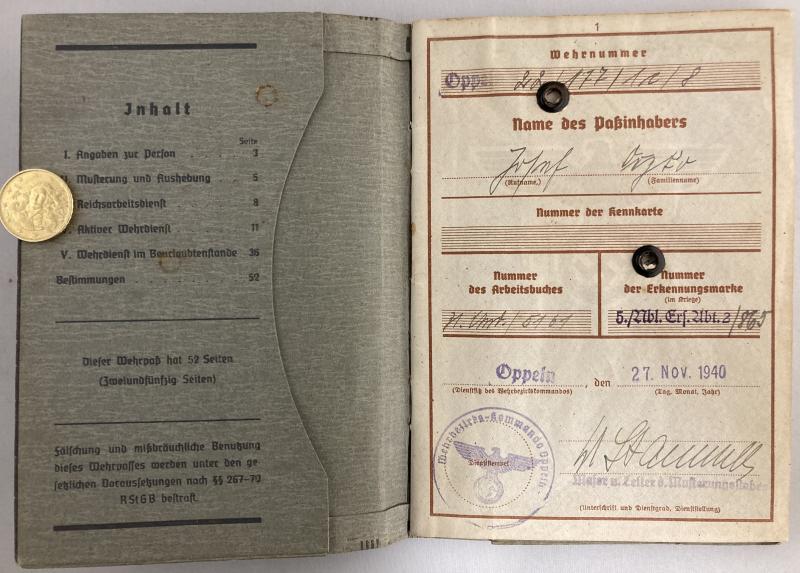 Inhalt
Seite
I. Angaben zur Person 3
Musterung und Aushebung 5
Reichsarbeitsdienst 8
Aktiver Wehrdienst 11
V. Wehrdienst im Beurlaubtenstande 36
Bestimmungen 52
Dieser Wehrpaß hat 52 Seiten
(Zweiundfünfzig Seiten)
Fälschung und mißbräuchliche Benutzung
dieses Wehrpasses werden unter den ge-
setzlichen Voraussetzungen nach §§ 267–70
RStGB bestraft.
1
Wehrnummer
Oppeln 22/177/12/8
Name des Paßinhabers
Josef
(Rufname,) (Familienname)
Nummer der Kennkarte
Nummer
des Arbeitsbuches
Nummer
der Erkennungsmarke
(im Kriege)
5./Nbl. Ers. Abt. 2/865
Oppeln, den 27. Nov. 1940
(Dienstsitz des Wehrbezirkskommandos) (Tag, Monat, Jahr)
Wehrbezirks-Kommando Oppeln
(Dienststempel)
Major u. Leiter d. Musterungsstabes
(Unterschrift und Dienstgrad, Dienststellung)